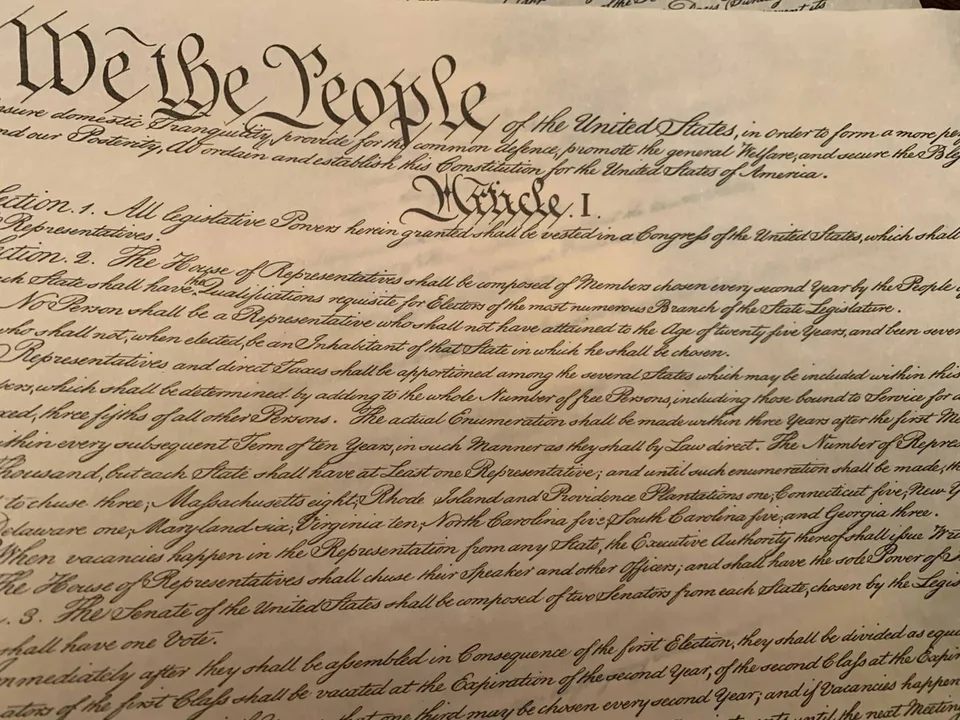 We the People of the United States, in order to form a more
sure domestic Tranquility, provide for the common defence, promote the general Welfare, and secure the
nd our Posterity, do ordain and establish this Constitution for the United States of America.
Article. I.
ection. 1. All legislative Powers herein granted shall be vested in a Congress of the United States, which shall
Representatives.
ction. 2. The House of Representatives shall be composed of Members chosen every second Year by the People
ch State shall have the Qualifications requisite for Electors of the most numerous Branch of the State Legislature.
No Person shall be a Representative who shall not have attained to the Age of twenty five Years, and been seven
who shall not, when elected, be an Inhabitant of that State in which he shall be chosen.
Representatives and direct Taxes shall be apportioned among the several States which may be included within this
bers, which shall be determined by adding to the whole Number of free Persons, including those bound to Service for a
xed, three fifths of all other Persons. The actual Enumeration shall be made within three Years after the first Me
ithin every subsequent Term of ten Years, in such Manner as they shall by Law direct. The Number of Repres
Thousand, but each State shall have at Least one Representative; and until such enumeration shall be made, th
to chuse three, Massachusetts eight, Rhode Island and Providence Plantations one, Connecticut five, New Y
Delaware one, Maryland six, Virginia ten, North Carolina five, South Carolina five, and Georgia three.
When vacancies happen in the Representation from any State, the Executive Authority thereof shall issue Writ
The House of Representatives shall chuse their Speaker and other Officers; and shall have the sole Power of
. 3. The Senate of the United States shall be composed of two Senators from each State, chosen by the Legis
shall have one Vote.
mmediately after they shall be assembled in Consequence of the first Election, they shall be divided as equa
ators of the first Class shall be vacated at the Expiration of the second Year, of the second Class at the Expir
that one third may be chosen every second Year; and if Vacancies happen
until the next Meeting